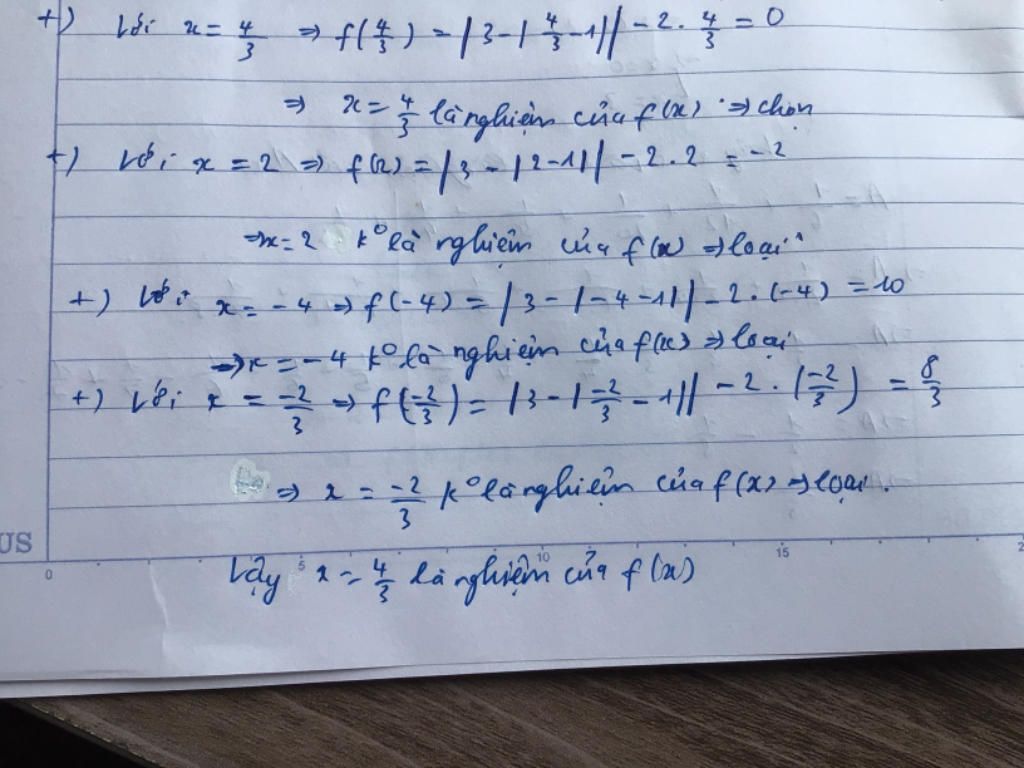 +) Với x = 4/3 ⇒ f(4/3) = |3 - |4/3 - 1|| - 2. 4/3 = 0
⇒ x = 4/3 là nghiệm của f(x) ⇒ chọn
+) Với x = 2 ⇒ f(2) = |3 - |2 - 1|| - 2. 2 = -2
⇒ x = 2 k° là nghiệm của f(x) ⇒ loại
+) Với x = -4 ⇒ f(-4) = |3 - |-4 - 1|| - 2. (-4) = 10
⇒ x = -4 k° là nghiệm của f(x) ⇒ loại
+) Với x = -2/3 ⇒ f(-2/3) = |3 - |-2/3 - 1|| - 2. (-2/3) = 8/3
⇒ x = -2/3 k° là nghiệm của f(x) ⇒ loại.
US
0 5 10 15 2
Vậy x = 4/3 là nghiệm của f(x)